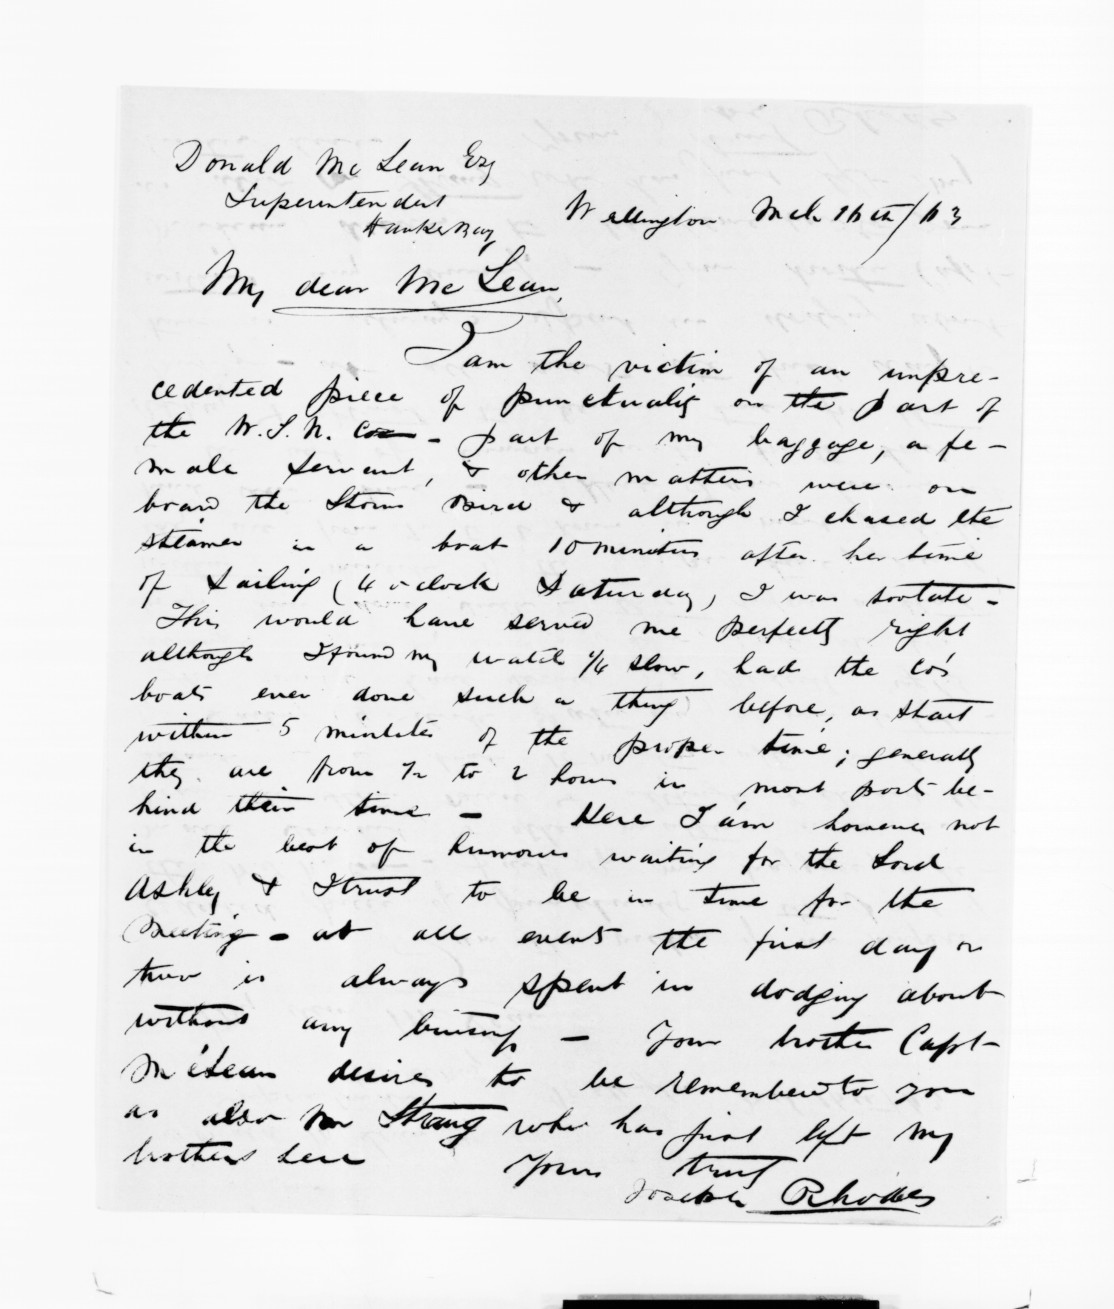 Donald McLean Esq
Superintendent
Hawkes Bay
Wellington Mch 16th/63
My dear McLean
I am the victim of an unpre-
cedented piece of punctuality on the part of
the W.S.N. Co - part of my baggage, a fe-
male servant, & other matters were on
board the Storm Bird & although I chased the
steamer in a boat 10 minutes after her time
of sailing (4 o'clock Saturday) I was too late -
This would have served me perfectly right
although I found my watch 1/4 slow, had the Co's
boats ever done such a thing before, as start
within 5 minutes of the proper time; generally
they are from 1/2 to 2 hours in most ports be-
hind their time - Here I am however not
in the best of humours waiting for the Lord
Ashley & I trust to be in time for the
Meeting - at all events the first day or
two is always spent in dodging about
without any business - Your brother Capt-
McLean desires to be remembered to you
as also Mr Strang who has just left my
brothers here
Yours truly
Joseph Rhodes